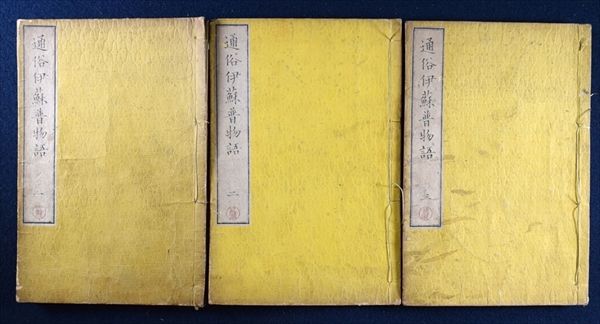 通俗伊蘇普物語 一
通俗伊蘇普物語 二
通俗伊蘇普物語 三